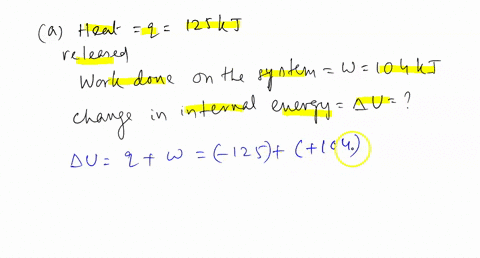 (a) Heat = q = 125 kJ
released
Work done on the system = W = 104 kJ
change in internal energy = ΔU = ?
ΔU = q + w = (-125) + (+104)